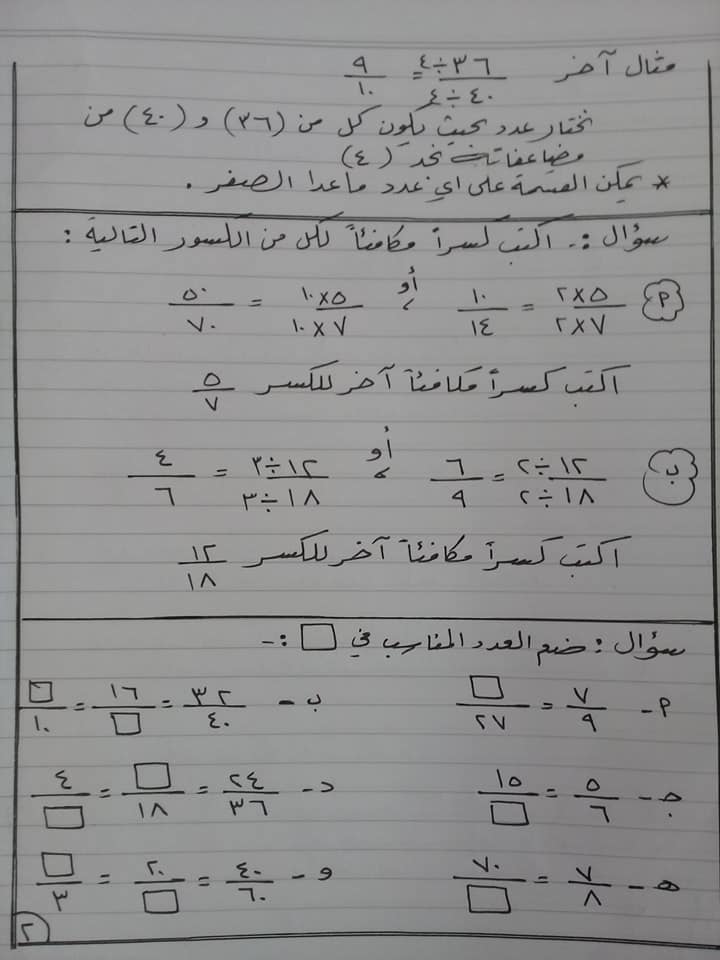 مثال آخر ٣٦÷٤/٤٠÷٤ = ٩/١٠
نختار عدد بحيث يكون كل من (٣٦) و (٤٠) من
مضاعفاته نجد (٤)
* يمكن القسمة على اي عدد ماعدا الصفر .
سؤال :- اكتب كسراً مكافئاً لكل من الكسور التالية :
أ ٥×٢/٧×٢ = ١٠/١٤ أو ٥×١٠/٧×١٠ = ٥٠/٧٠
اكتب كسراً مكافئاً آخر للكسر ٥/٧
ب ١٢÷٢/١٨÷٢ = ٦/٩ أو ١٢÷٣/١٨÷٣ = ٤/٦
اكتب كسراً مكافئاً آخر للكسر ١٢/١٨
سؤال : ضع العدد المناسب في □ :-
أ - ٧/٩ = □/٢٧ ب - ٣٢/٤٠ = ١٦/□ = □/١٠
جـ - ٥/٦ = ١٥/□ د - ٢٤/٣٦ = □/١٨ = ٤/□
هـ - ٧/٨ = ٧٠/□ و - ٤٠/٦٠ = ٢٠/□ = □/٣
٢